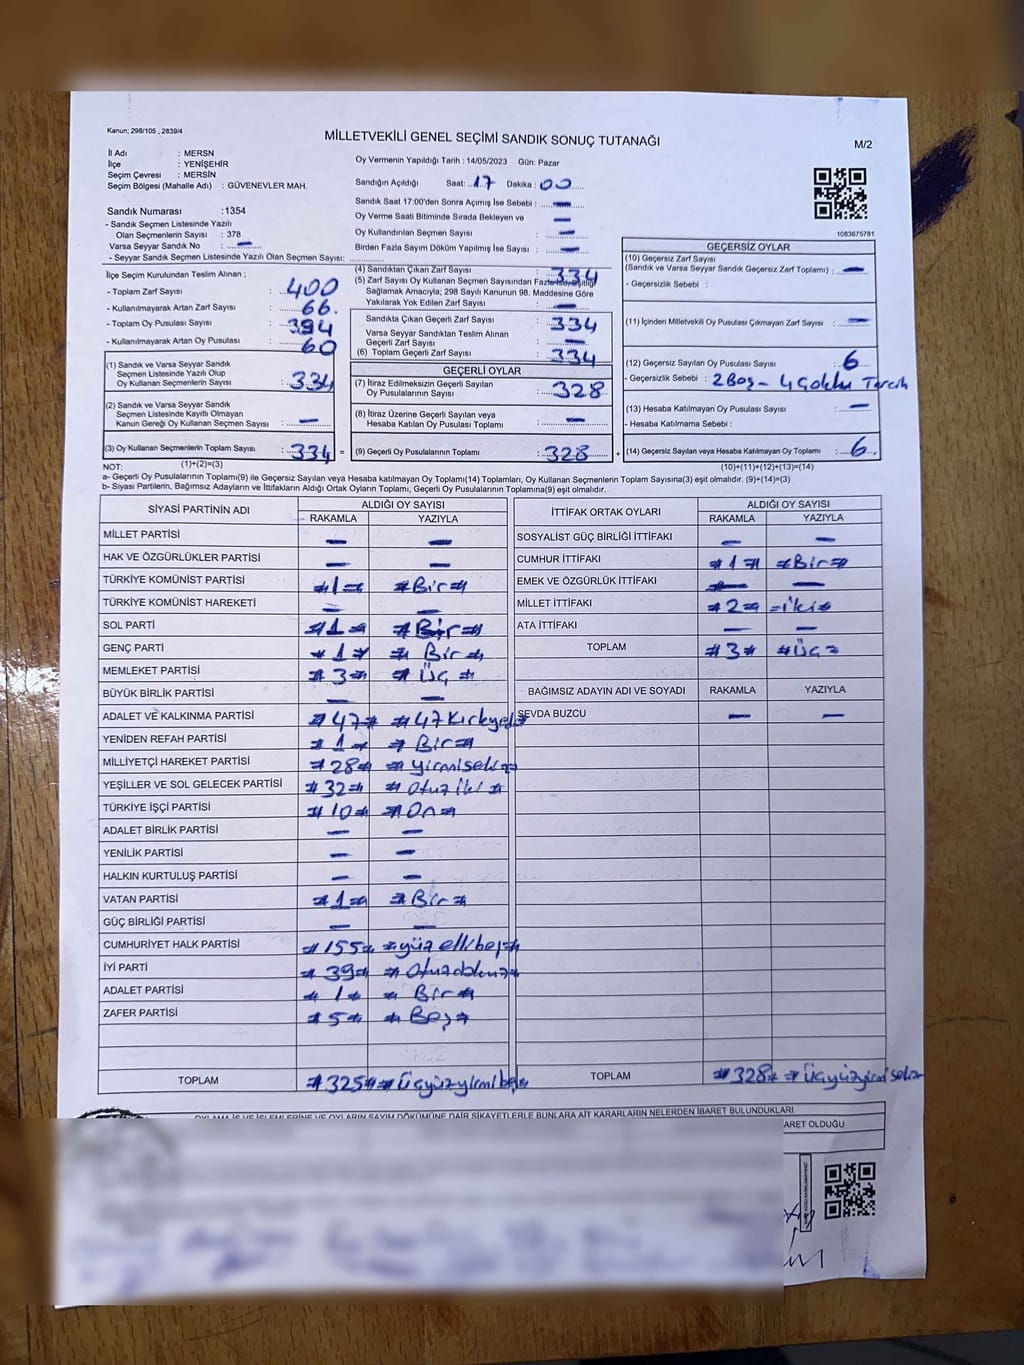 Kanun; 298/105 , 2839/4
MİLLETVEKİLİ GENEL SEÇİMİ SANDIK SONUÇ TUTANAĞI
M/2
İl Adı : MERSN
İlçe : YENİŞEHİR
Seçim Çevresi : MERSİN
Seçim Bölgesi (Mahalle Adı) : GÜVENEVLER MAH.
Sandık Numarası :1354
- Sandık Seçmen Listesinde Yazılı
Olan Seçmenlerin Sayısı : 378
Varsa Seyyar Sandık No : —
- Seyyar Sandık Seçmen Listesinde Yazılı Olan Seçmen Sayısı:
Oy Vermenin Yapıldığı Tarih : 14/05/2023 Gün: Pazar
Sandığın Açıldığı Saat: 17 Dakika : 00
Sandık Saat 17:00'den Sonra Açımış İse Sebebi : —
Oy Verme Saati Bitiminde Sırada Bekleyen ve —
Oy Kullandırılan Seçmen Sayısı : —
Birden Fazla Sayım Döküm Yapılmış İse Sayısı : —
1083675781
İlçe Seçim Kurulundan Teslim Alınan ;
- Toplam Zarf Sayısı : 400
- Kullanılmayarak Artan Zarf Sayısı : 66.
- Toplam Oy Pusulası Sayısı : 394
- Kullanılmayarak Artan Oy Pusulası : 60
(1) Sandık ve Varsa Seyyar Sandık
Seçmen Listesinde Yazılı Olup
Oy Kullanan Seçmenlerin Sayısı : 334
(2) Sandık ve Varsa Seyyar Sandık
Seçmen Listesinde Kayıtlı Olmayan
Kanun Gereği Oy Kullanan Seçmen Sayısı : —
(3) Oy Kullanan Seçmenlerin Toplam Sayısı : 334 =
(1)+(2)=(3)
(4) Sandıktan Çıkan Zarf Sayısı : 334
(5) Zarf Sayısı Oy Kullanan Seçmen Sayısından Fazla İse, Eşitliği
Sağlamak Amacıyla; 298 Sayılı Kanunun 98. Maddesine Göre
Yakılarak Yok Edilen Zarf Sayısı : —
Sandıkta Çıkan Geçerli Zarf Sayısı : 334
Varsa Seyyar Sandıktan Teslim Alınan
Geçerli Zarf Sayısı : —
(6) Toplam Geçerli Zarf Sayısı : 334
GEÇERLİ OYLAR
(7) İtiraz Edilmeksizin Geçerli Sayılan
Oy Pusulalarının Sayısı : 328
(8) İtiraz Üzerine Geçerli Sayılan veya
Hesaba Katılan Oy Pusulası Toplamı : —
(9) Geçerli Oy Pusulalarının Toplamı : 328 +
GEÇERSİZ OYLAR
(10) Geçersiz Zarf Sayısı
(Sandık ve Varsa Seyyar Sandık Geçersiz Zarf Toplamı) : —
- Geçersizlik Sebebi :
(11) İçinden Milletvekili Oy Pusulası Çıkmayan Zarf Sayısı : —
(12) Geçersiz Sayılan Oy Pusulası Sayısı : 6
- Geçersizlik Sebebi : 2 Boş - 4 Çoklu Tercih
(13) Hesaba Katılmayan Oy Pusulası Sayısı : —
- Hesaba Katılmama Sebebi :
(14) Geçersiz Sayılan veya Hesaba Katılmayan Oy Toplamı : 6.
(10)+(11)+(12)+(13)=(14)
NOT:
a- Geçerli Oy Pusulalarının Toplamı(9) ile Geçersiz Sayılan veya Hesaba katılmayan Oy Toplamı(14) Toplamları, Oy Kullanan Seçmenlerin Toplam Sayısına(3) eşit olmalıdır. (9)+(14)=(3)
b- Siyasi Partilerin, Bağımsız Adayların ve İttifakların Aldığı Ortak Oyların Toplamı, Geçerli Oy Pusulalarının Toplamına(9) eşit olmalıdır.
SİYASİ PARTİNİN ADI ALDIĞI OY SAYISI
RAKAMLA YAZIYLA
MİLLET PARTİSİ — —
HAK VE ÖZGÜRLÜKLER PARTİSİ — —
TÜRKİYE KOMÜNİST PARTİSİ #1# #Bir#
TÜRKİYE KOMÜNİST HAREKETİ — —
SOL PARTİ #1# #Bir#
GENÇ PARTİ #1# #Bir#
MEMLEKET PARTİSİ #3# #Üç#
BÜYÜK BİRLİK PARTİSİ — —
ADALET VE KALKINMA PARTİSİ #47# #47 Kırkyedi#
YENİDEN REFAH PARTİSİ #1# #Bir#
MİLLİYETÇİ HAREKET PARTİSİ #28# #yirmisekiz
YEŞİLLER VE SOL GELECEK PARTİSİ #32# #Otuz iki#
TÜRKİYE İŞÇİ PARTİSİ #10# #On#
ADALET BİRLİK PARTİSİ — —
YENİLİK PARTİSİ — —
HALKIN KURTULUŞ PARTİSİ — —
VATAN PARTİSİ #1# #Bir#
GÜÇ BİRLİĞİ PARTİSİ — —
CUMHURİYET HALK PARTİSİ #155# #yüz elli beş#
İYİ PARTİ #39# #Otuzdokuz#
ADALET PARTİSİ #1# #Bir#
ZAFER PARTİSİ #5# #Beş#
TOPLAM #325# #Üçyüzyirmi beş
İTTİFAK ORTAK OYLARI ALDIĞI OY SAYISI
RAKAMLA YAZIYLA
SOSYALİST GÜÇ BİRLİĞİ İTTİFAKI — —
CUMHUR İTTİFAKI #1# #Bir#
EMEK VE ÖZGÜRLÜK İTTİFAKI — —
MİLLET İTTİFAKI #2# #iki#
ATA İTTİFAKI — —
TOPLAM #3# #Üç#
BAĞIMSIZ ADAYIN ADI VE SOYADI RAKAMLA YAZIYLA
SEVDA BUZCU — —
TOPLAM #328# #Üçyüzyirmi sekiz
OYLAMA İŞ VE İŞLEMLERİNE VE OYLARIN SAYIM DÖKÜMÜNE DAİR ŞİKAYETLERLE BUNLARA AİT KARARLARIN NELERDEN İBARET BULUNDUKLARI
ARET OLDUĞU